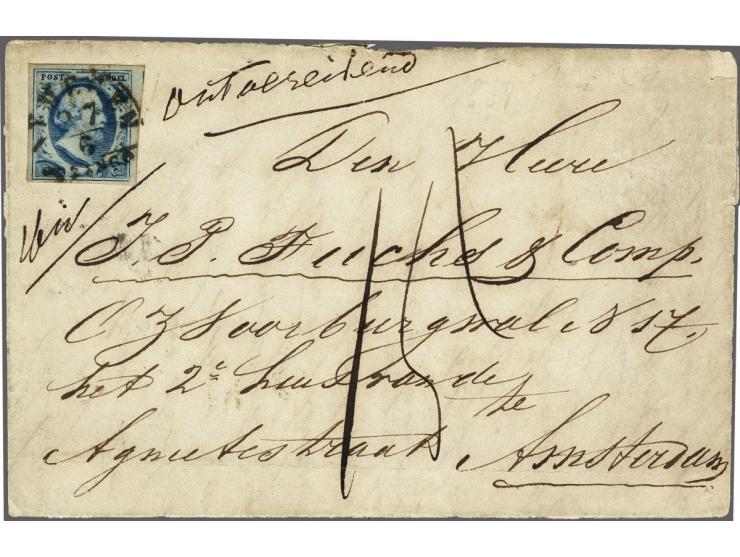 POST ZEGEL
ontoereikend
Den Heere
J. P. Fuchs & Comp.
O Z Voorburgwal N 17.
het 2e huis van de
te
Agnietestraat Amsterdam
15